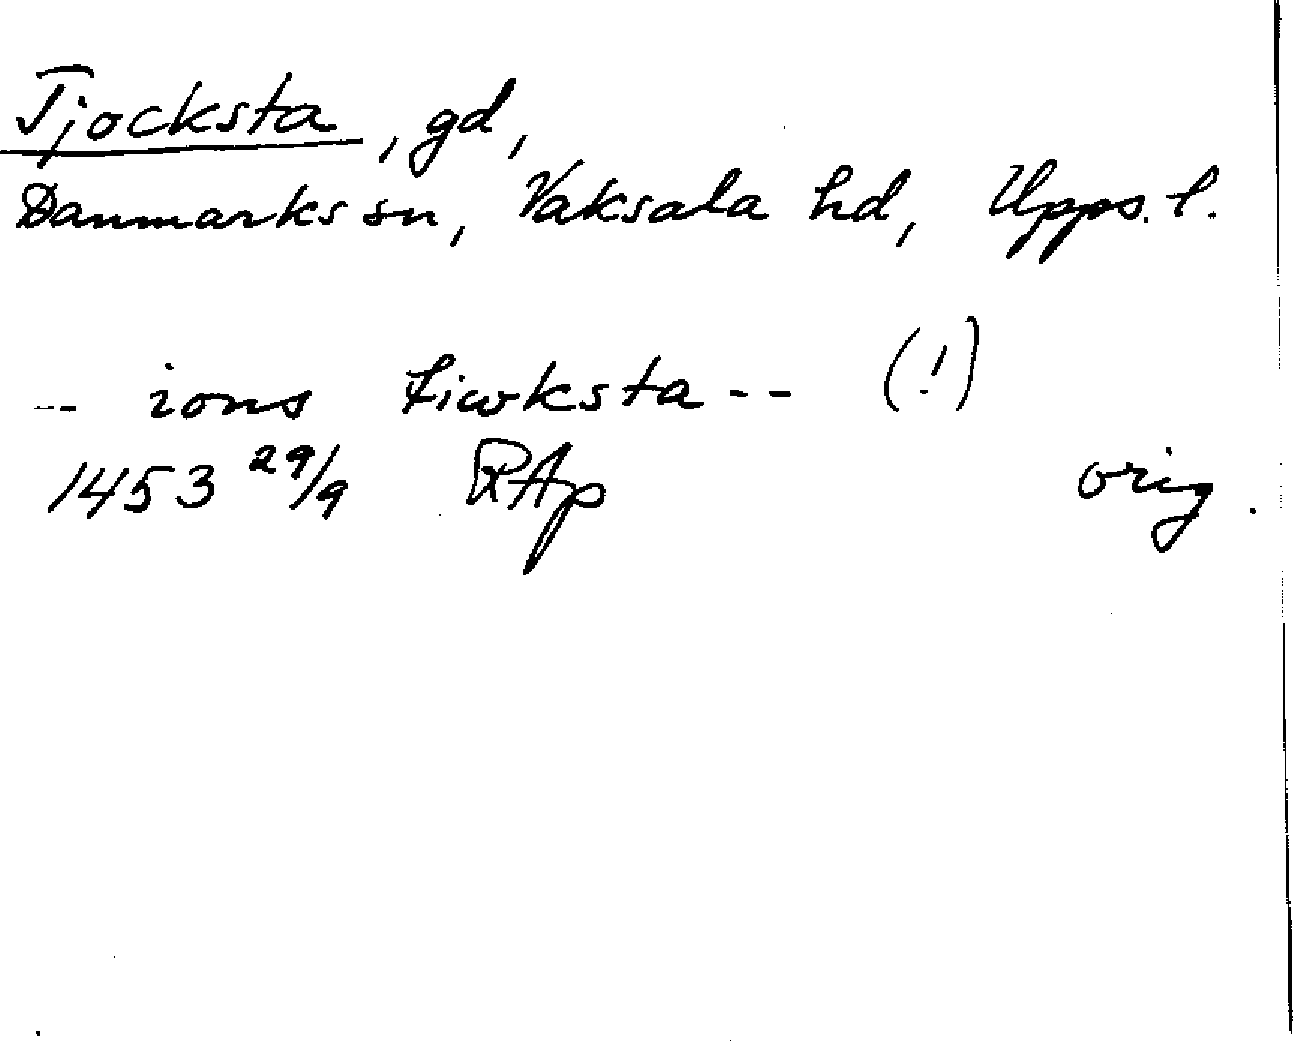 Tjocksta, gd,
Danmarks sn, Vaksala hd, Upps. l.
-- ions tiwksta -- (!)
1453 29/9 RAp orig.